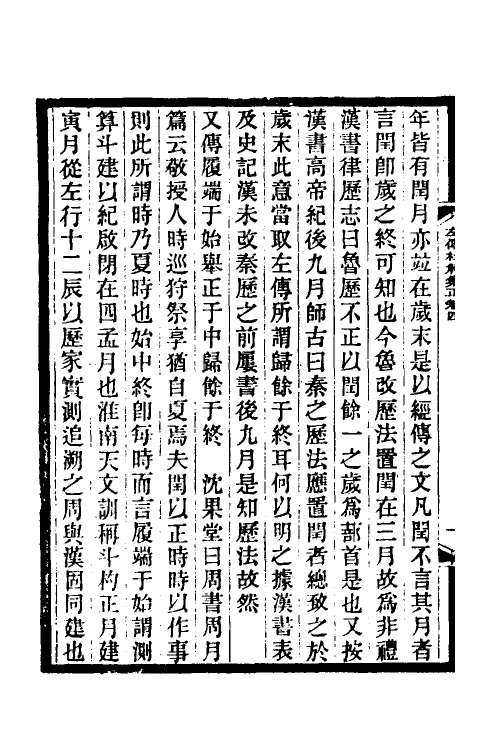 年皆有閏月亦竝在歲末是以經傳之文凡閏不言其月者
言閏卽歲之終可知也今魯改歷法置閏在三月故爲非禮
漢書律歷志曰魯歷不正以閏餘一之歲爲蔀首是也又按
漢書高帝紀後九月師古曰秦之歷法應置閏者總致之於
歲末此意當取左傳所謂歸餘于終耳何以明之據漢書表
及史記漢未改秦歷之前屢書後九月是知歷法故然
又傳履端于始舉正于中歸餘于終　沈果堂曰周書周月
篇云敬授人時巡狩祭享猶自夏焉夫閏以正時時以作事
則此所謂時乃夏時也始中終卽每時而言履端于始謂測
算斗建以紀啟閉在四孟月也淮南天文訓稱斗杓正月建
寅月從左行十二辰以歷家實測追溯之周與漢固同建也
左傳杜解集正卷四
一